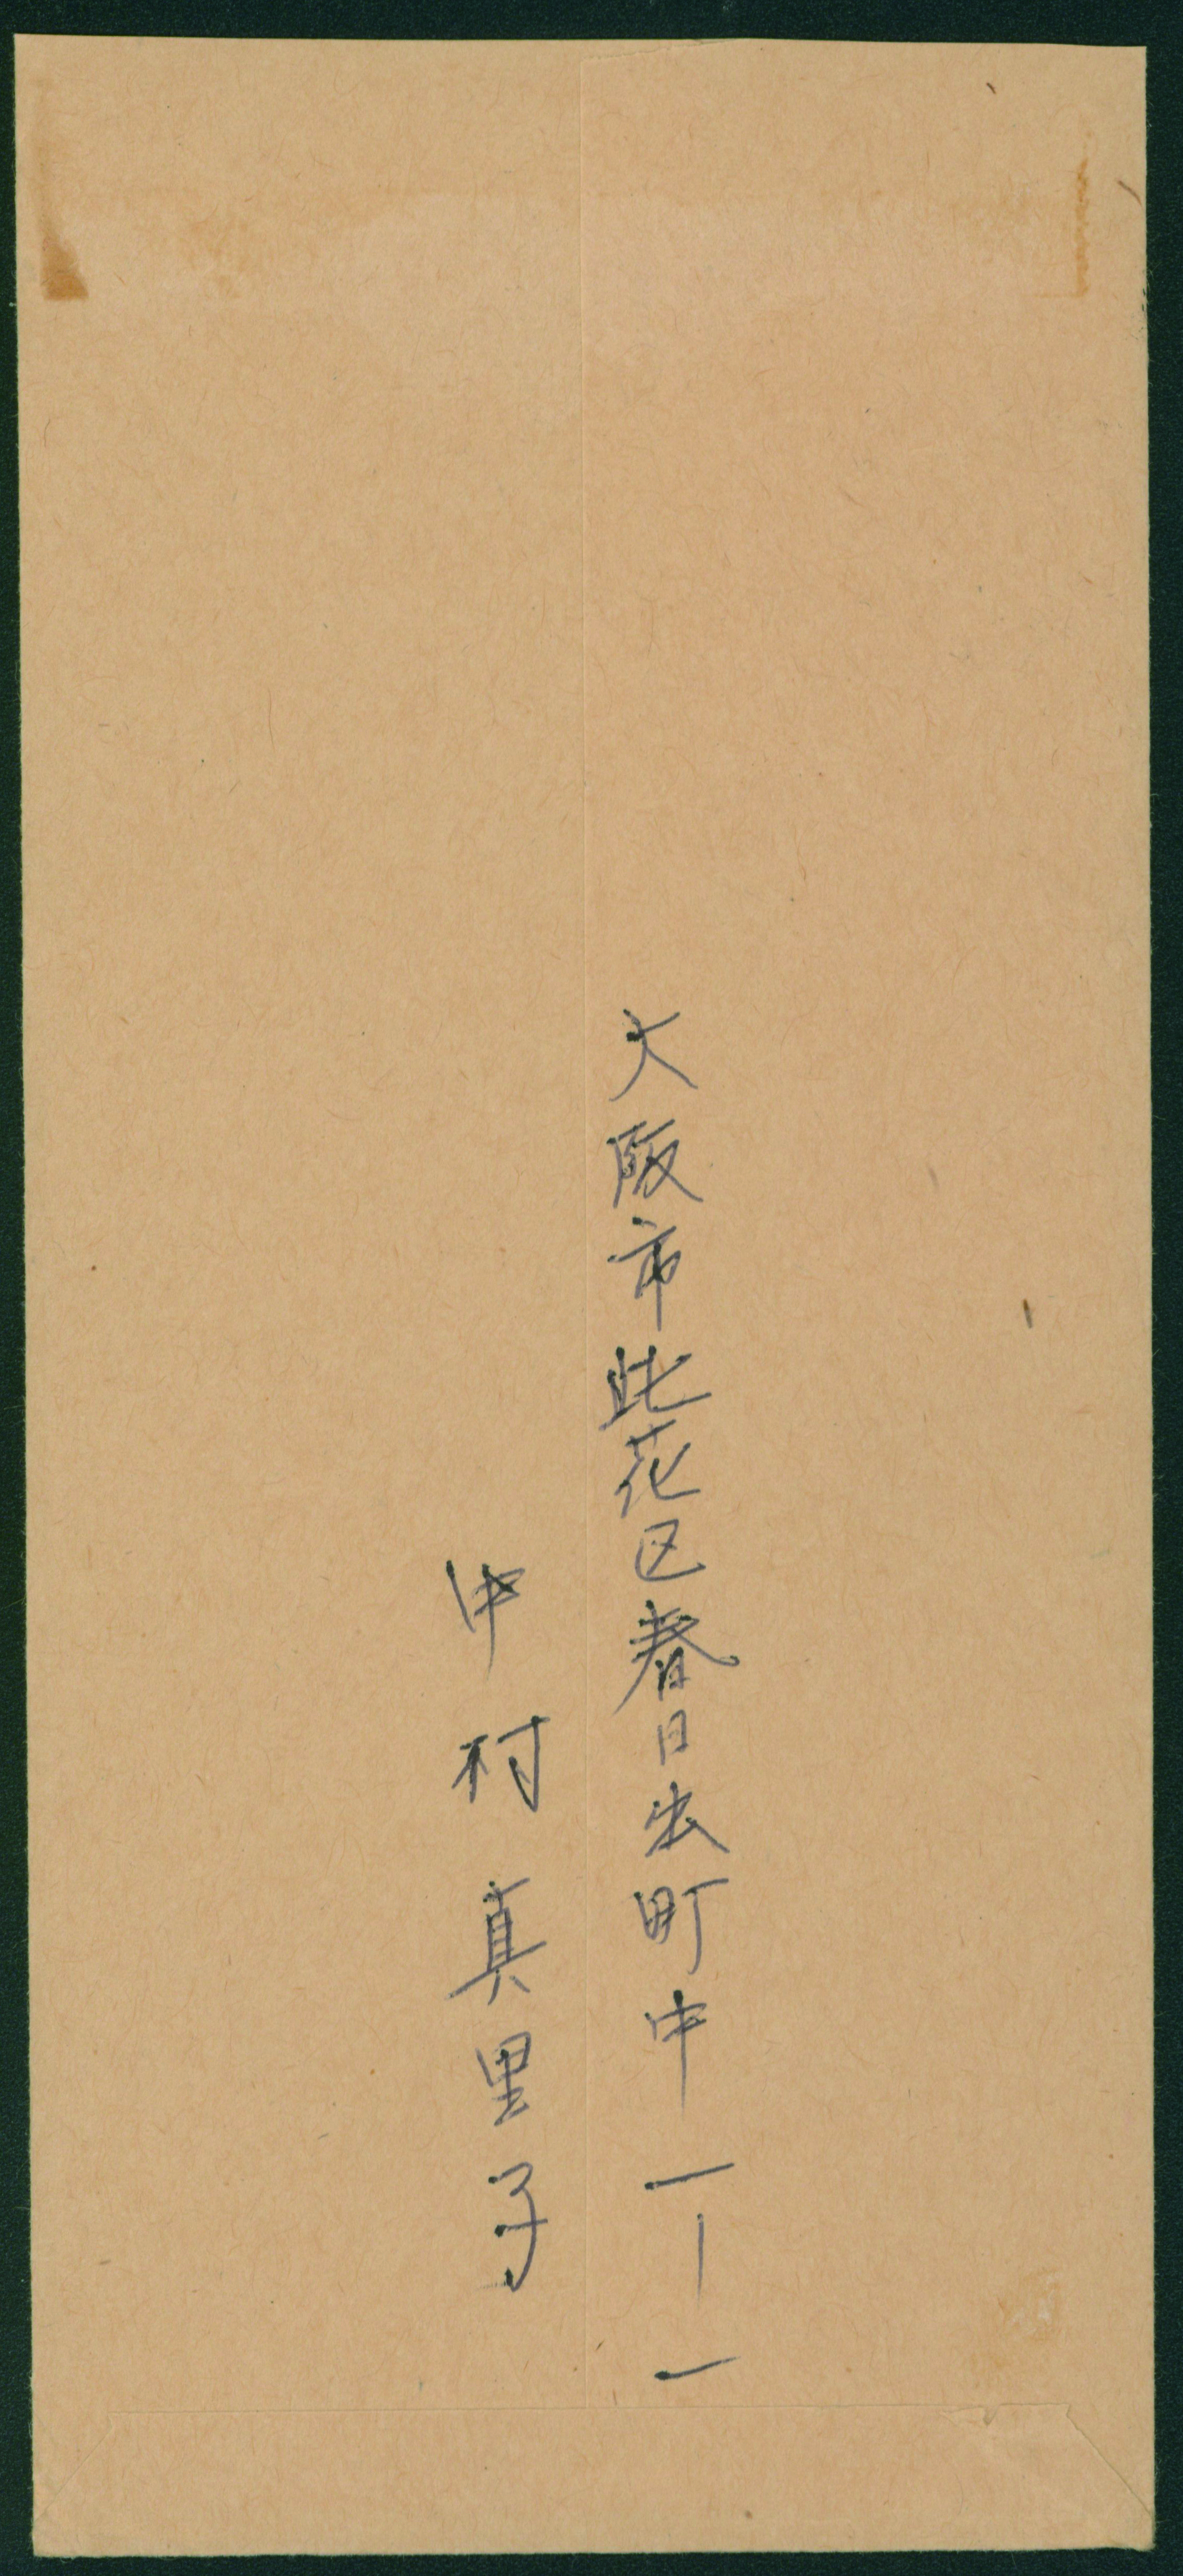 大阪市此花区春日出町中一ー一
中村真里子